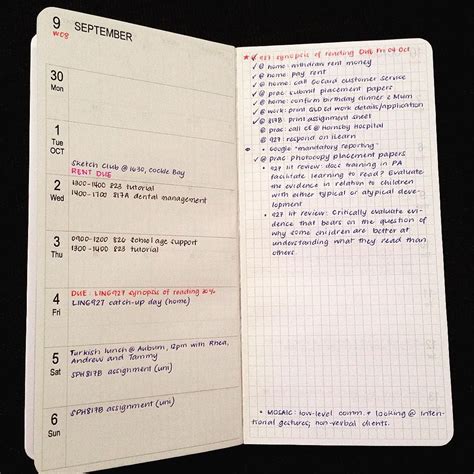 9 SEPTEMBER
WO8
30
Mon
1
Tue
OCT
Sketch Club @ 1630, Cockle Bay
RENT DUE
2
Wed
1300-1400 823 tutorial
1400-1700 817A dental management
3
Thu
0900-1200 820 school age support
1300-1400 823 tutorial
4
Fri
DUE: LING927 synopsis of reading 30%
LING927 catch-up day (home)
5
Sat
Turkish lunch @ Auburn, 12pm with Rhea,
Andrew and Tammy
SPH817B assignment (uni)
6
Sun
SPH817B assignment (uni)
★ ✓ 927: synopsis of reading DUE Fri 04 Oct
✓ @ home: withdraw rent money
✓ @ home: pay rent
✓ @ home: call GoCard customer service
✓ @ prac: submit placement papers
✓ @ home: confirm birthday dinner @ Mum
✓ @ work: print QLD Ed work details/application
✓ @ 817B: print assignment sheet
@ prac: call CE @ Hornsby Hospital
@ 927: respond on iLearn
• Google "mandatory reporting"
✓ @ prac: photocopy placement papers
• 927 lit review: does training in PA
facilitate learning to read? Evaluate
the evidence in relation to children
with either typical or atypical devel-
opment
• 927 lit review: Critically evaluate evi-
dence that bears on the question of
why some children are better at
understanding what they read than
others.
• MOSAIC: low-level comm. + looking @ inten-
tional gestures; non-verbal clients.